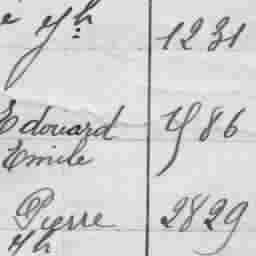 e Jh 1231
Edouard 786
Emile
Pierre 2829
Jh